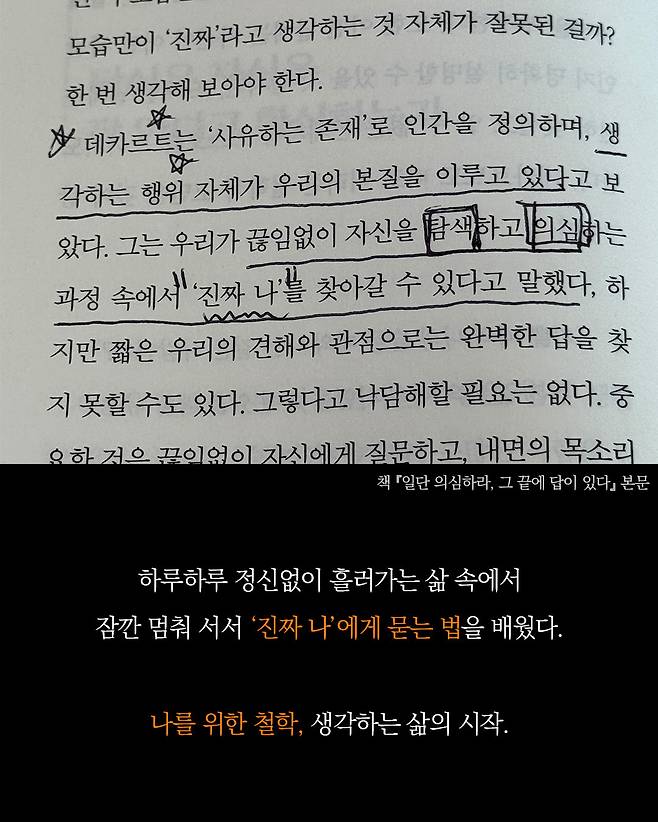 모습만이 ‘진짜’라고 생각하는 것 자체가 잘못된 걸까?
한 번 생각해 보아야 한다.
데카르트는 ‘사유하는 존재’로 인간을 정의하며, 생
각하는 행위 자체가 우리의 본질을 이루고 있다고 보
았다. 그는 우리가 끊임없이 자신을 탐색하고 의심하는
과정 속에서 ‘진짜 나’를 찾아갈 수 있다고 말했다, 하
지만 짧은 우리의 견해와 관점으로는 완벽한 답을 찾
지 못할 수도 있다. 그렇다고 낙담해할 필요는 없다. 중
요한 것은 끊임없이 자신에게 질문하고, 내면의 목소리
책 『일단 의심하라, 그 끝에 답이 있다』 본문
하루하루 정신없이 흘러가는 삶 속에서
잠깐 멈춰 서서 ‘진짜 나’에게 묻는 법을 배웠다.
나를 위한 철학, 생각하는 삶의 시작.